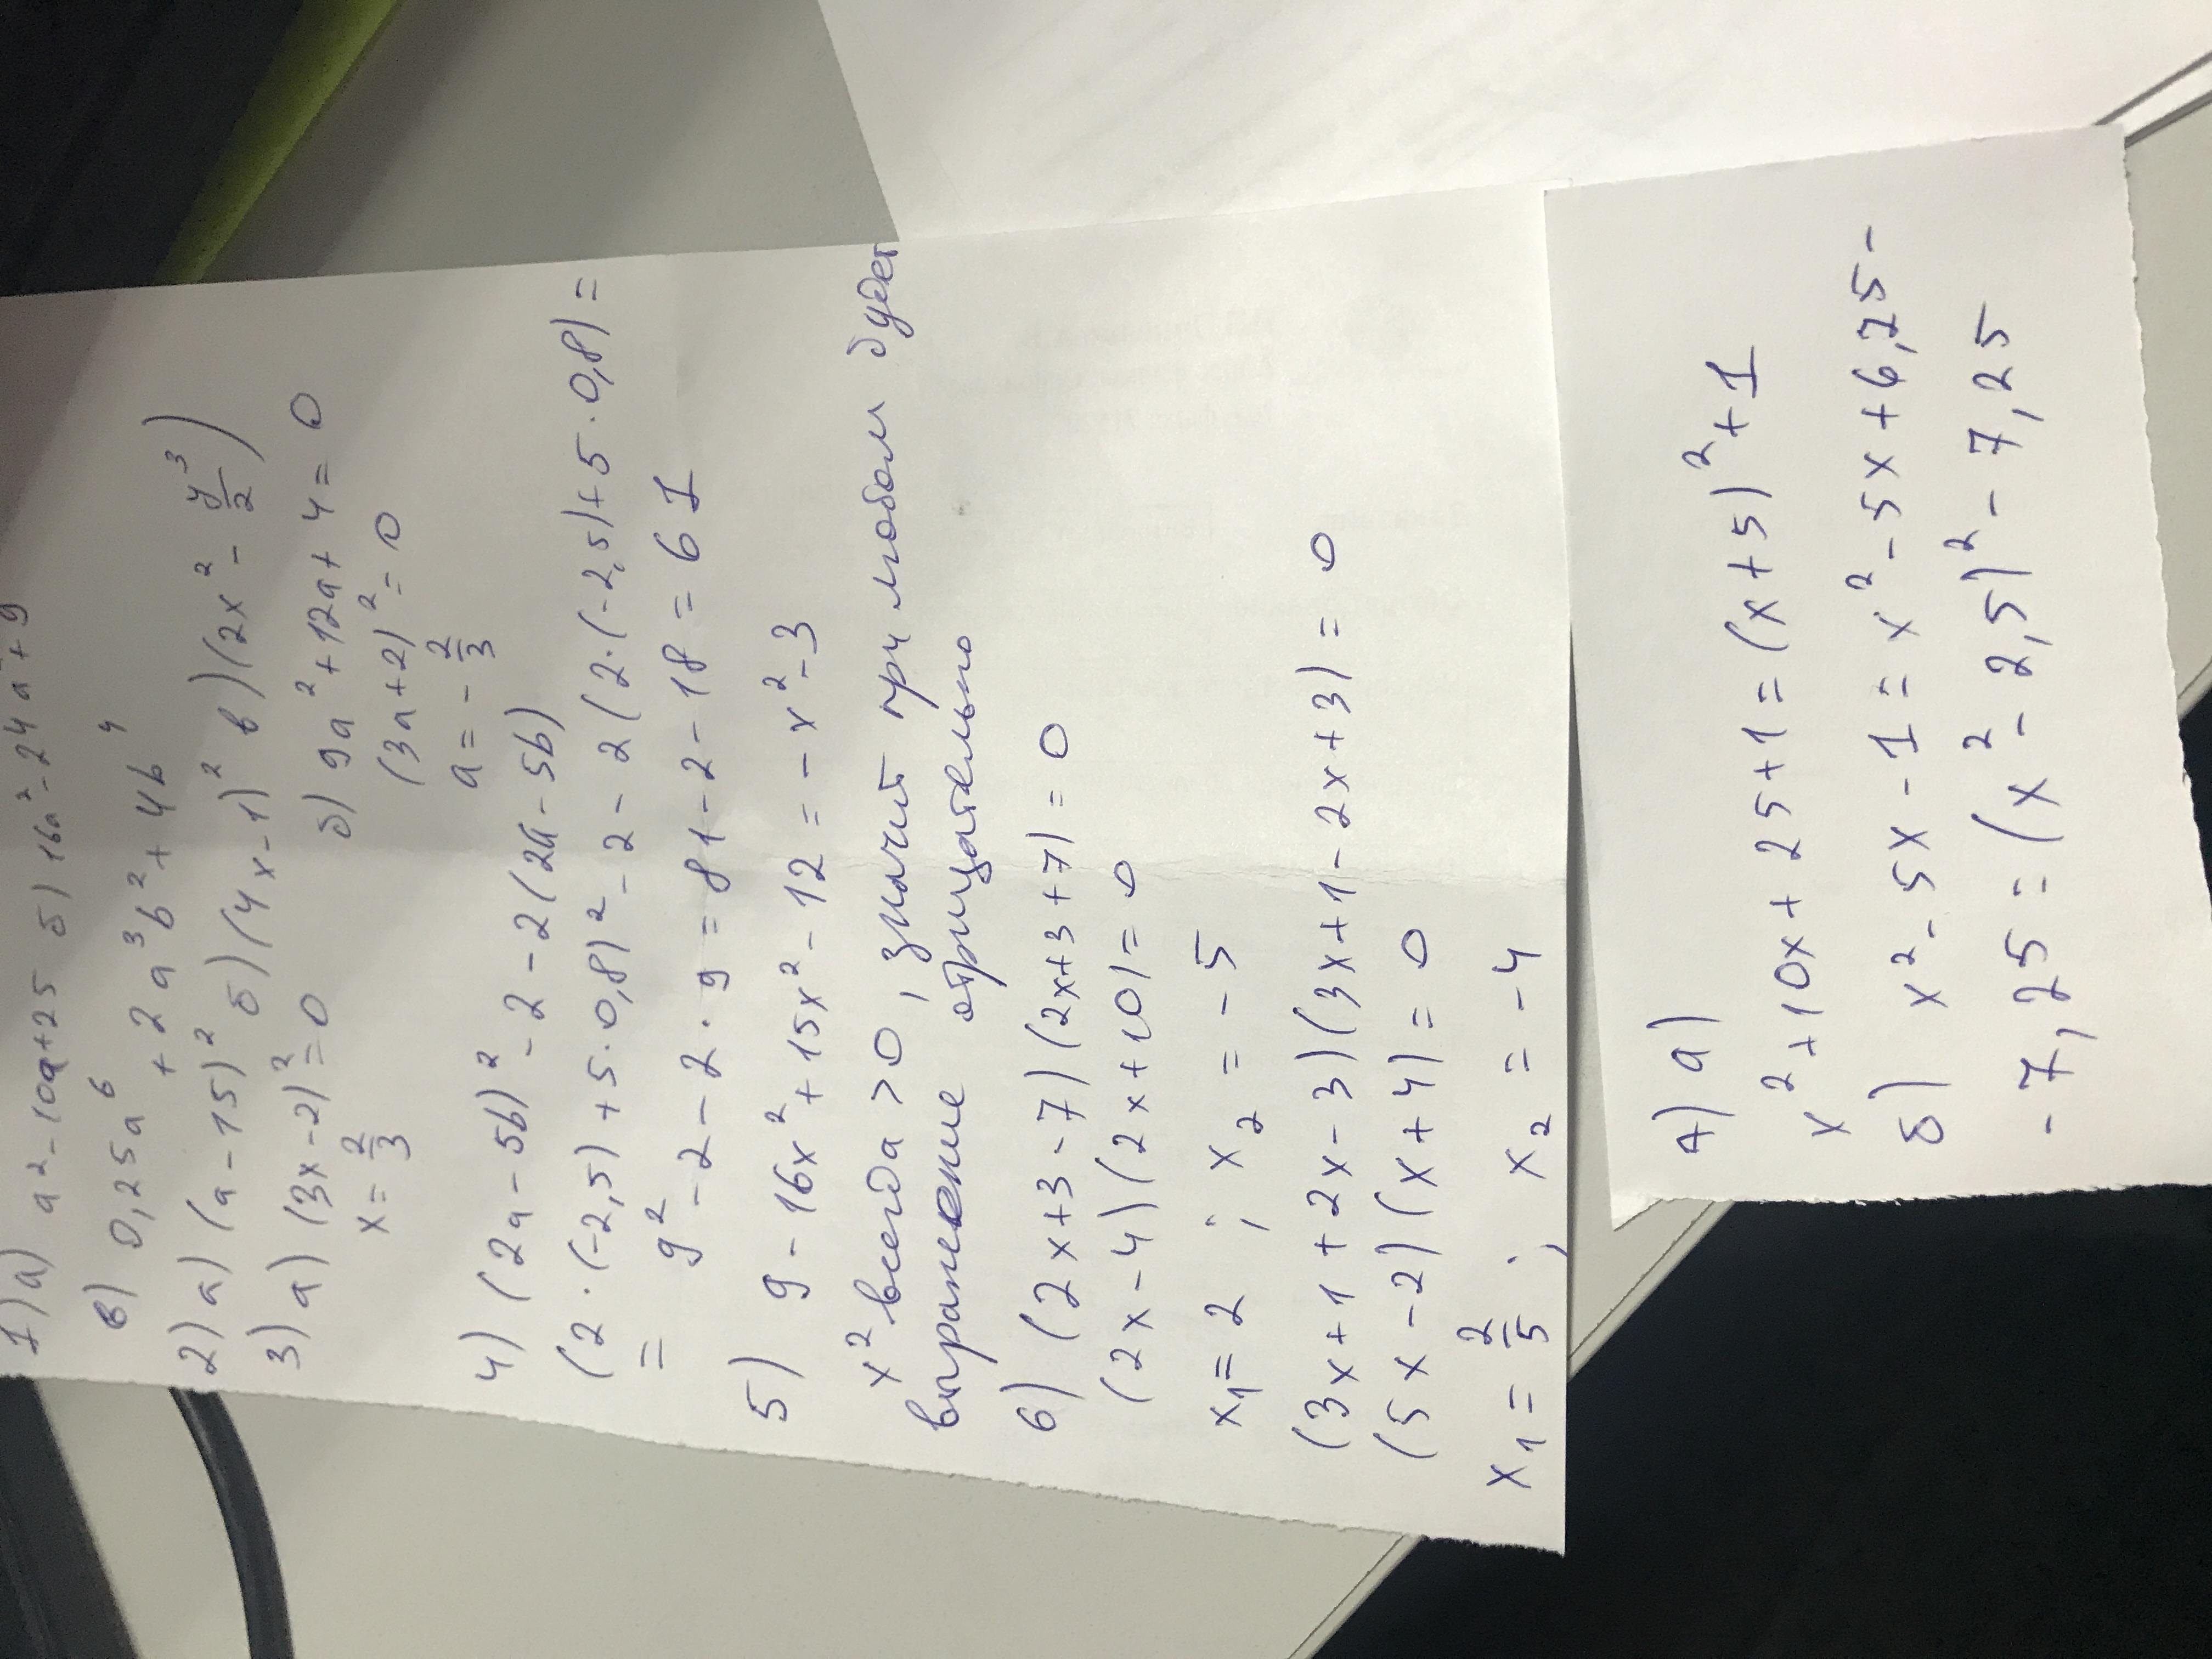 1) а) a² - 10a + 25 б) 16a² - 24a + 9
в) 0,25a⁶ + 2a³b² + 4b⁴
2) а) (a - 15)² б) (4x - 1)² в) (2x² - y³/2)
3) а) (3x - 2)² = 0 б) 9a² + 12a + 4 = 0
x = 2/3 (3a + 2)² = 0
a = - 2/3
4) (2a - 5b)² - 2 - 2(2a - 5b)
(2 · (-2,5) + 5 · 0,8)² - 2 - 2(2 · (-2,5) + 5 · 0,8) =
= 9² - 2 - 2 · 9 = 81 - 2 - 18 = 61
5) 9 - 16x² + 15x² - 12 = - x² - 3
x² всегда > 0, значит при любом будет
выражение отрицательно
6) (2x + 3 - 7)(2x + 3 + 7) = 0
(2x - 4)(2x + 10) = 0
x₁ = 2 ; x₂ = - 5
(3x + 1 + 2x - 3)(3x + 1 - 2x + 3) = 0
(5x - 2)(x + 4) = 0
x₁ = 2/5 ; x₂ = - 4
7) а)
x² + 10x + 25 + 1 = (x + 5)² + 1
б) x² - 5x - 1 = x² - 5x + 6,25 -
- 7,25 = (x² - 2,5)² - 7,25